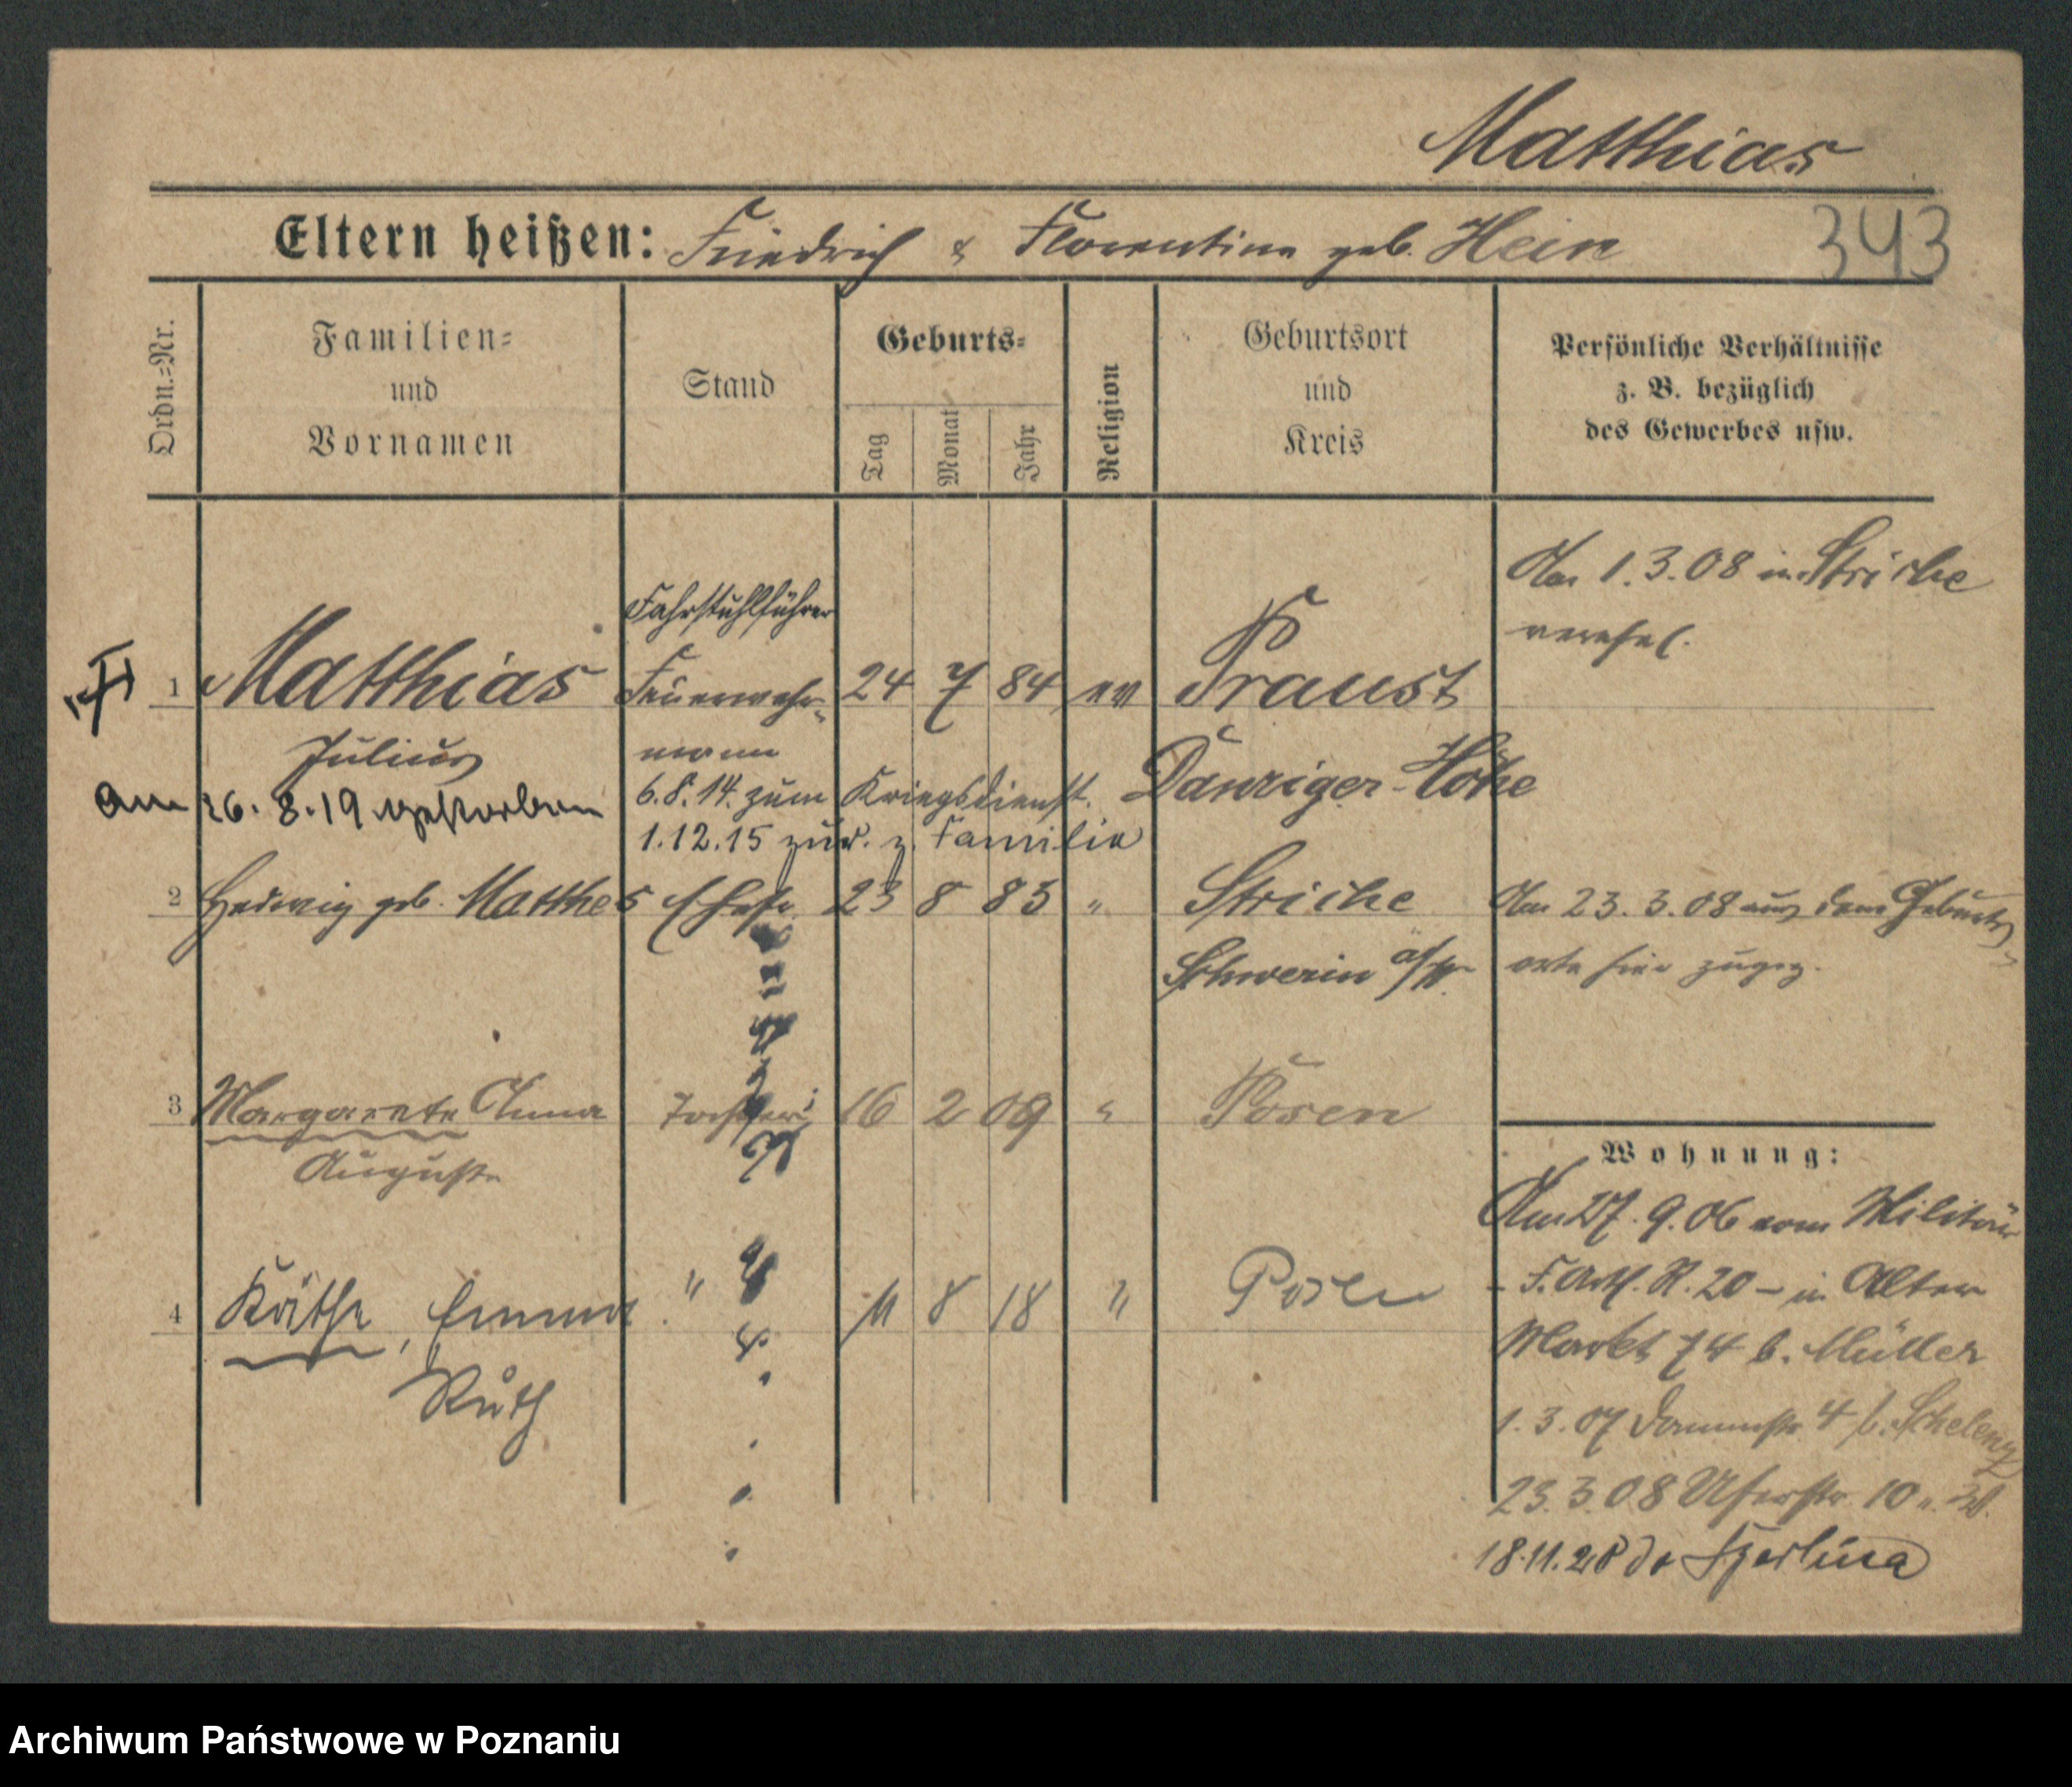 Matthias
343
Eltern heißen: Friedrich & Florentine geb. Hein
Ordn.-Nr.
Familien-
und
Vornamen
Stand
Geburts-
Tag
Monat
Jahr
Religion
Geburtsort
und
Kreis
Persönliche Verhältnisse
z. B. bezüglich
des Gewerbes usw.
Am 1.3.08 in Striche
verehel.
Fahrstuhlführer
1 Matthias Feuerwehr- 24 7 84 ev Praust
Julius mann Danziger-Höhe
am 26.8.19 gestorben
6.8.14. zum Kriegsdienst.
1.12.15 zur. z. Familie
2 Hedwig geb. Matthes Ehefr. 23 8 83 " Striche
Am 23.3.08 aus dem Geburts
Schwerin a/W.
orte hier zugez.
3 Margarete Anna Tochter 16 2 09 " Posen
Auguste
4 Käthe, Emma " 11 8 18 " Posen
Ruth
Wohnung:
Am 27.9.06 vom Militär
- F. Art. R. 20 - in Alter
Markt 74 b. Müller
1.3.07 Dammstr. 4 b. Schelenz
23.3.08 Uferstr. 10
18.11.28 do
Archiwum Państwowe w Poznaniu